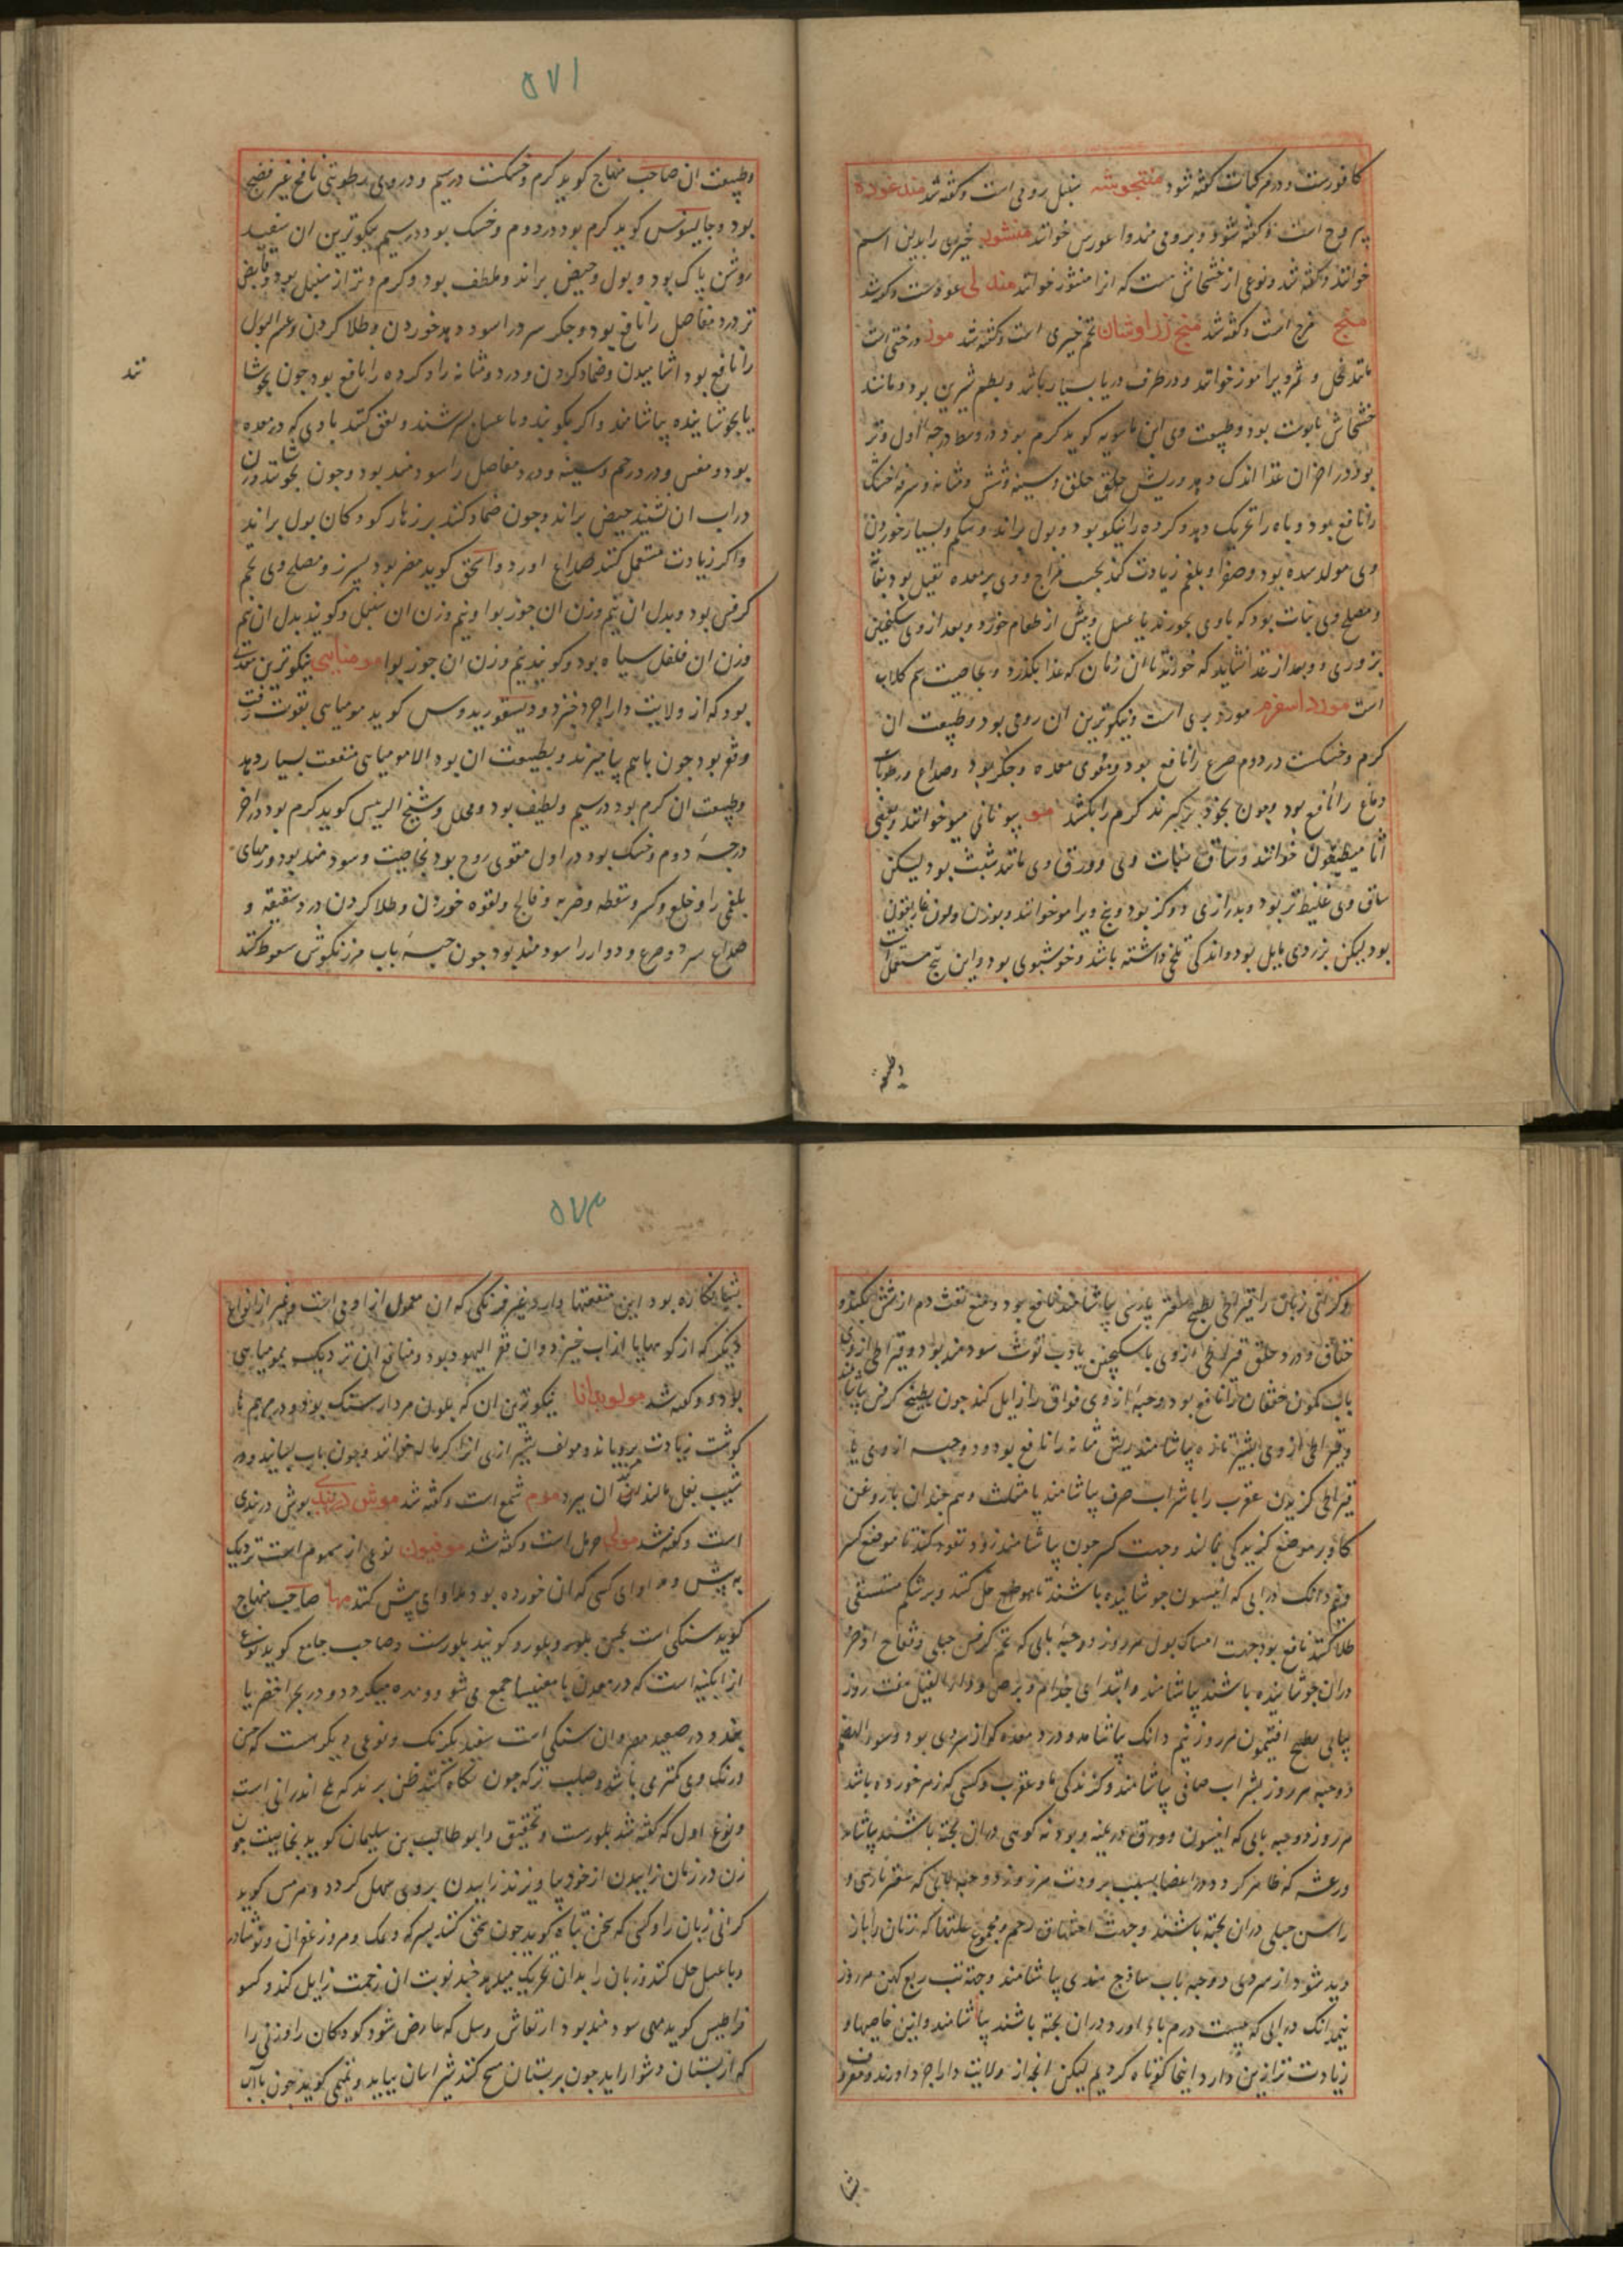 کافورست و در مرکبات گفته شود منتجوشه سنبل رومی است و گفته شد مندغوره
خوانند و گفته شد و نوعی از خشخاش هست که انرا منثور خوانند مندلی عودست و گفته شد
منج است و گفته شد منج زراوشان تخم خیری است و گفته شد موز درختی است
مانند نخل و ثمر ویرا موز خوانند و در طرف دریا بسیار باشد و بطعم شیرین بود و مانند
وی ابن ماسویه کوید کرم بود در وسط درجه اول و تر
بود در اخر ان غذا اندک دهد و ریش حلق و سینه و شش و مثانه و سرفه خشک
را نافع بود و باه را تحریک دهد و کرده را نیکو بود و بول براند و شکم و بسیار خوردن
وی مولد سده بود و صفرا و بلغم زیادت کند بحسب مزاج و وی بر معده ثقیل بود
و مصلح وی نبات بود که باوی بخورند یا عسل و پیش از طعام خورد و بعد از وی سکنجبین
بزوری و بعد از غذا نشاید که خورند تا ان زمان که غذا بکذرد و بخاصیت سم کلاب
است مورد اسفرم مورد بری است و نیکوترین ان رومی بود و طبیعت ان
کرم و خشکست در دوم صرع را نافع بود و مقوی معده و جکر بود و صداع و رطوبات
دماغ را نافع بود و چون بخور بر کیرند کرم را بکشد مو بیونانی میو خوانند و بعضی
خوانند و ساق نبات وی و ورق وی مانند شبث بود لیکن
ساق وی غلیظ تر بود و بدرازی دو کز بود و بیخ ویرا مو خوانند و بوزن ولون غاریقون
بود لیکن بزردی مایل بود و اندکی تلخی داشته باشد و خوشبوی بود و این بیخ مستعمل است
وطبیعت
۵۷۱
وطبیعت ان صاحب منهاج کوید کرم و خشکست در سیم و در وی رطوبتی نافخ غیر نضیج
بود و جالینوس کوید کرم بود در دوم و خشک بود در سیم نیکوترین ان سفید
روشن پاک بود و بول و حیض براند و ملطف بود و کرم و تر از سنبل بود و قابض
تر درد مفاصل را نافع بود و جکر سرد را سود دهد خوردن و طلا کردن و عسر البول
را نافع بود اشامیدن و ضماد کردن و درد مثانه را و کرده را نافع بود چون بجوشا
یا بجوشانیده بیاشامند و اکر بکوبند و با عسل بسرشند و لعق کنند بادی که در معده
بود و مغس و درد رحم و سینه و درد مفاصل را سودمند بود و چون بجوشانند و زن
در اب ان نشیند حیض براند و چون ضماد کنند بر زهار کودکان بول براند
واکر زیادت مستعمل کنند صداع اورد و اسحق کوید مضر بود بسپرز و مصلح وی تخم
کرفس بود و بدل ان نیم وزن ان جوز بوا و نیم وزن ان سنبل و کویند بدل ان نیم
وزن ان فلفل سیاه بود و کویند نیم وزن ان جوز بوا مومیایی نیکوترین معدنی
بود که از ولایت دارابجرد خیزد و دیسقوریدوس کوید مومیایی بقوت زفت
وقفر بود چون باهم بیامیزند و بطبیعت ان بود الا مومیایی منفعت بسیار دهد
وطبیعت ان کرم بود در سیم و لطیف بود و محلل و شیخ الرییس کوید کرم بود در اخر
درجهٔ دوم و خشک بود در اول مقوی روح بود بخاصیت و سودمند بود ورمهای
بلغمی را و خلع و کسر و سقطه و ضربه و فالج و لقوه خوردن و طلا کردن درد شقیقه و
صداع سرد و صرع و دوار را سودمند بود چون حبهٔ باب مرزنکوش سعوط کنند
تند
وکرانی زبان را قیراطی بطبیخ صعتر پارسی بیاشامند نافع بود و منع نفث دم از شش بکند و
خناق و درد حلق قیراطی از وی با سکنجبین یا رب توث سودمند بود و قیراطی از وی
باب کمون خفقان را نافع بود و حبهٔ از وی فواق را زایل کند چون بطبیخ کرفس بیاشامند
وقیراطی از وی بشیر تازه بیاشامند ریش مثانه را نافع بود و دو حبه از وی یا
قیراطی کزیدن عقرب را با شراب صرف بیاشامند یا مثلث و هم چندان با روغن
کاو بر موضع کزیدکی بمالند و جهت کسر چون بیاشامند زود نفوذ کند تا موضع کسر
ونیم دانک در ابی که انیسون جوشانیده باشند حل کنند و بر شکم مستسقی
طلا کنند نافع بود جهت امساک بول هر روز دو حبه بابی که تخم کرفس جبلی و فقاح اذخر
دران جوشانیده باشند بیاشامند و ابتدای جذام و برص و داء الفیل هفت روز
پیاپی بطبیخ افتیمون هر روز نیم دانک بیاشامد و درد معده که از سردی بود و سوء الهضم
دو حبه هر روز بشراب صافی بیاشامند و کزندکی مار و عقرب و کسی که زهر خورده باشد
هر روز دو حبه بابی که انیسون و ورق و پودنه کوهی دران پخته باشند بیاشامد
ورعشه که ظاهر کردد در اعضا بسبب برودت هر روز دو حبه بابی که صعتر پارسی و
راسن جبلی دران پخته باشند و جهت اختناق رحم و مجموع علتها که زنان را باز
دید شود از سردی دو حبه باب ساذج هندی بیاشامند و جهة تب ربع کهن هر روز
نیم دانک در ابی که بیست درم دران پخته باشند بیاشامند و این خاصیها و
زیادت تر ازین دارد اینجا کوتاه کردیم لیکن انچه از ولایت دارابجرد اورند و معروف
بشبا
۵۷۳
بود این منفعتها دارد غیر فرنکی که ان معمول از ادمی است و غیر از انواع
دیکر که از کوهها یا از اب خیزد و ان قفر الیهود بود و منافع ان نزدیک بمومیایی
بود و کفته شد مولوبدانا نیکوترین ان که بلون مردارسنک بود و در مرهم ها
کوشت زیادت برویاند و مولف شیرازی انرا خوانند و چون باب بسایند و در
شیب بغل مالند کند ان ببرد موم شمع است و کفته شد موش دربندی بوش دربندی
است و کفته شد مولی حرمل است و کفته شد موفیون نوعی از سموم است نزدیک
به بیش و مداوای کسی که ان خورده بود مداوای بیش کنند مها صاحب منهاج
کوید سنکی است بلور و کویند بلورست و صاحب جامع کوید نوعی
از ابکینه است که در معدن با مغنیسا جمع می شود و میکردد و در بحر اخضر یا
بود و در صعید مصر و ان سنکی است سفید یکرنک و نوعی دیکر هست که حسن
ورنک وی کمتر می باشد و صلب تر که چون نکاه کنند ظن برند که ملح اندرانی است
و نوع اول که کفته شد بلورست و تحقیق و ابو طالب بن سلیمان کوید بخاصیت چون
زن در زمان زاییدن از خود بیاویزند زاییدن بروی سهل کردد و هرمس کوید
کرانی زبان را و کسی که سخن تباه کوید چون سحق کنند بسرکه و نمک و مر و زعفران و نوشادر
وبا عسل حل کنند و زبان را بدان تحریک میدهد چند نوبت ان زحمت زایل کند و کسو
قراطیس کوید مهی سودمند بود ارتعاش و سل که عارض شود کودکان را و زنی را
که از پستان دشوار اید چون بر پستان مسح کنند شیر اسان بیاید و تمیمی کوید چون با اب